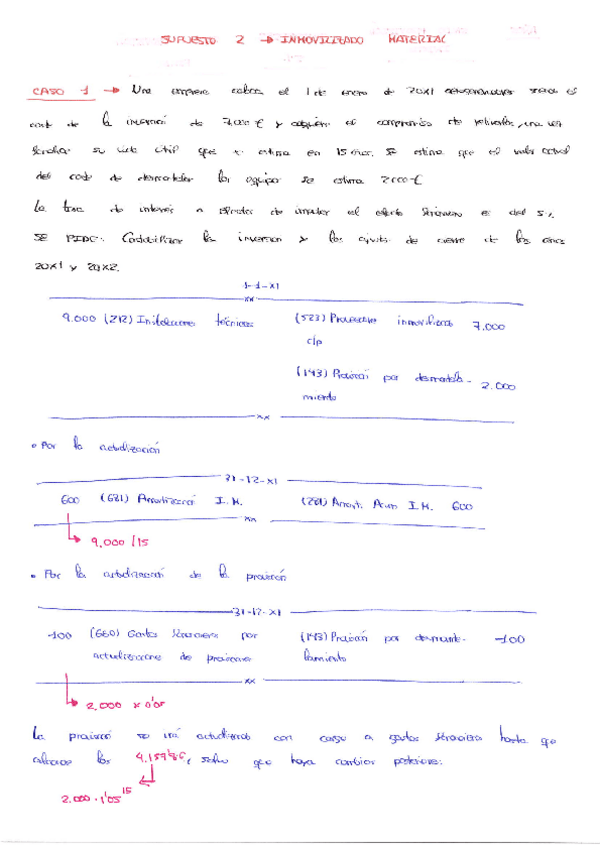 SUPUESTO 2 → INMOVILIZADO MATERIAL
CASO 1 → Una empresa el 1 de enero de 20X1 el
coste de la inversión de 7.000 € y adquiere el compromiso de una vez
su vida útil que se estima en 15 años. Se estima que el valor actual
del coste de desmantelar los equipos se estima 2000 €
La tasa de interés a efectos de el efecto financiero es del 5%
SE PIDE: Contabilizar la inversión y los ajustes de cierre de los años
20X1 y 20X2.
1-1-X1
9.000 (212) Instalaciones técnicas (523) Proveedores inmovilizado 7.000
c/p
(143) Provisión por desmantela- 2.000
miento
• Por la actualización
31-12-X1
600 (681) Amortización I.M. (281) Amort. Acum I.M. 600
9.000/15
• Por la actualización de la provisión
31-12-X1
-100 (660) Gastos financieros por (143) Provisión por desmante- -100
actualizaciones de provisiones lamiento
2.000 x 0'05
La provisión se irá actualizando con cargo a gastos financieros hasta que
alcance los 4.157'86 €, salvo que haya cambios posteriores:
2.000 · 1'05^15